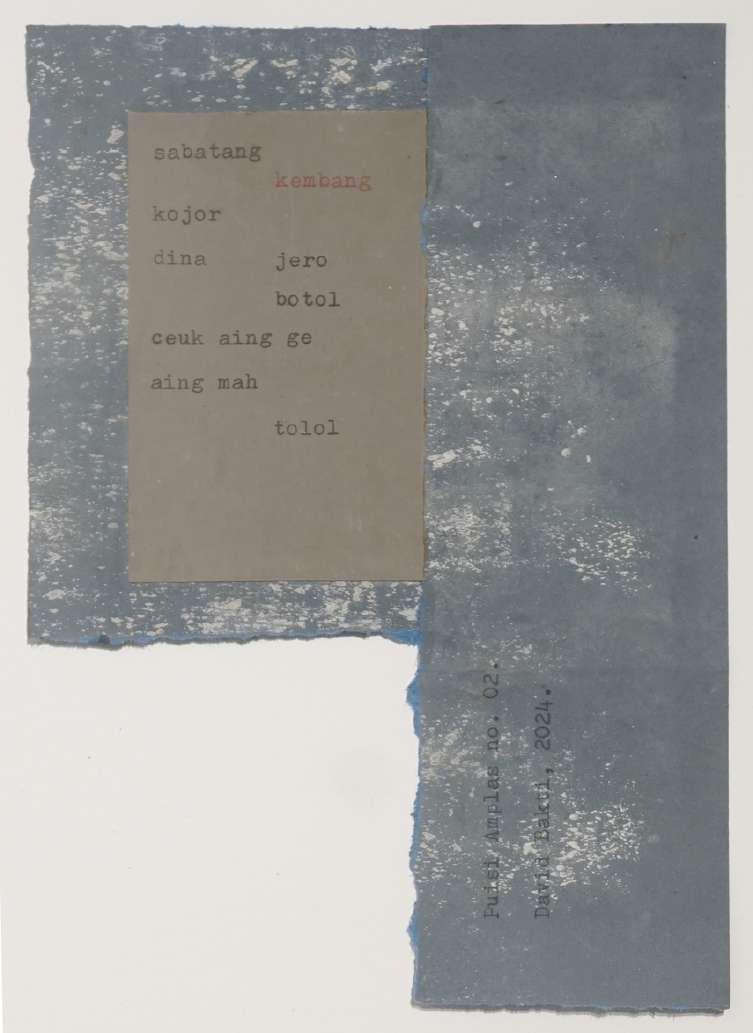 sabatang
kembang
kojor
dina jero
botol
ceuk aing ge
aing mah
tolol
Puisi Amplas no. 02.
David Bakti, 2024.